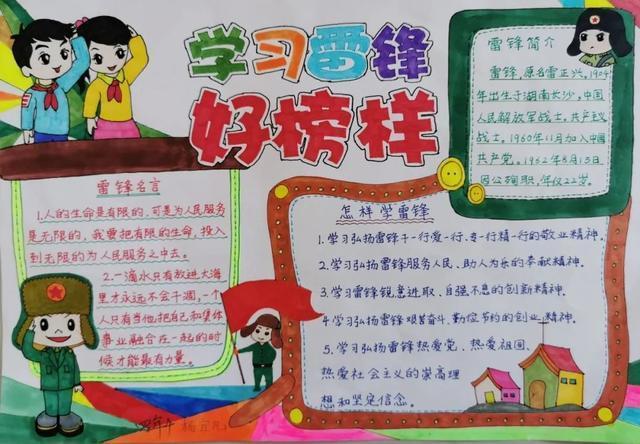 学习雷锋
好榜样
雷锋简介
雷锋,原名雷正兴,1904
年出生于湖南长沙,中国
人民解放军战士,共产主义
战士。1960年11月加入中国
共产党。1962年8月15日,
因公殉职,年仅22岁。
雷锋名言
1.人的生命是有限的,可是为人民服务
是无限的,我要把有限的生命,投入
到无限的为人民服务之中去。
2.一滴水只有放进大海
里才永远不会干涸,一个
人只有当他把自己和集体
事业融合在一起的时
候才能最有力量。
怎样学雷锋
1.学习弘扬雷锋干一行爱一行、专一行精一行的敬业精神。
2.学习弘扬雷锋服务人民、助人为乐的奉献精神。
3.学习雷锋锐意进取、自强不息的创新精神。
4.学习弘扬雷锋艰苦奋斗、勤俭节约的创业精神。
5.学习弘扬雷锋热爱党、热爱祖国、
热爱社会主义的崇高理
想和坚定信念。